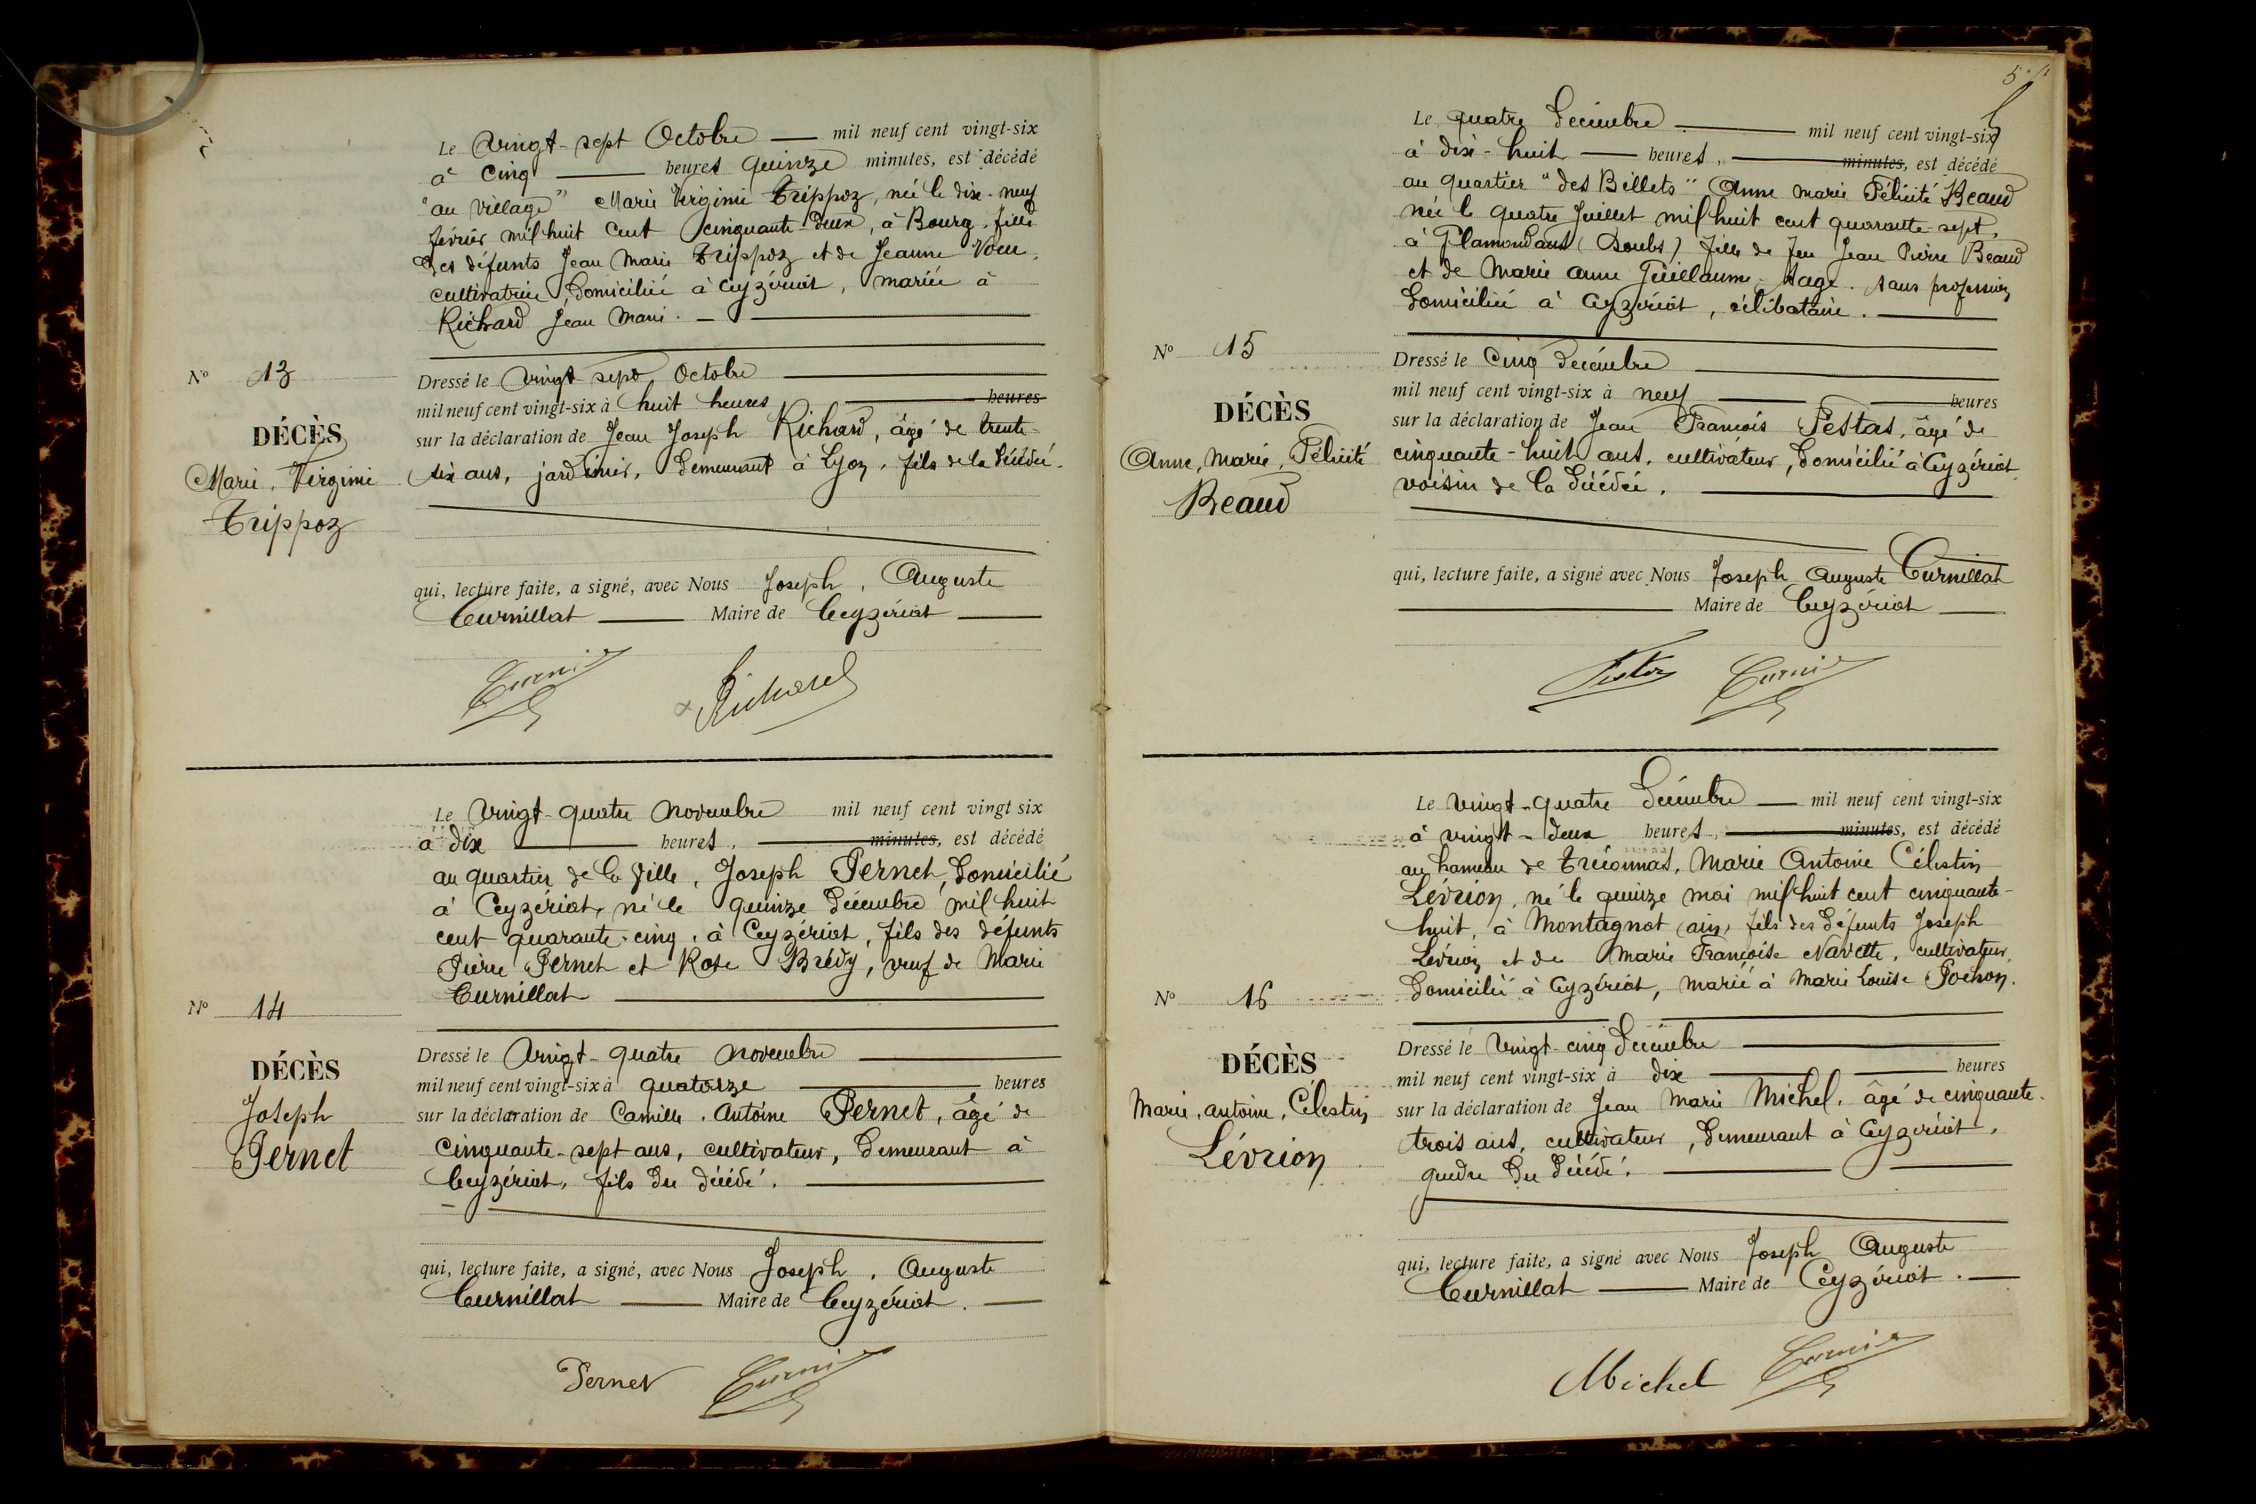 Le vingt-sept Octobre mil neuf cent vingt-six
à cinq heures quinze minutes, est décédé
"au village" Marie Virginie Trippoz, née le dix-neuf
février mil huit cent cinquante-deux, à Bourg, fille
des défunts Jean Marie Trippoz et de Jeanne
cultivatrice, domiciliée à Ceyzériat, mariée à
Richard Jean Marie.
Nº 13
DÉCÈS
Marie, Virginie
Trippoz
Dressé le vingt-sept Octobre
mil neuf cent vingt-six à huit heures heures
sur la déclaration de Jean Joseph Richard, âgé de trente-
six ans, jardinier, demeurant à Lyon, fils de la décédée.
qui, lecture faite, a signé, avec Nous Joseph, Auguste
Curnillat Maire de Ceyzériat
Richard
Le vingt-quatre novembre mil neuf cent vingt six
à dix heures, minutes, est décédé
au quartier de la Ville, Joseph Pernet, domicilié
à Ceyzériat, né le quinze décembre mil huit
cent quarante-cinq, à Ceyzériat, fils des défunts
Pierre Pernet et Rose Brédy, veuf de Marie
Curnillat
Nº 14
DÉCÈS
Joseph
Pernet
Dressé le vingt-quatre novembre
mil neuf cent vingt-six à quatorze heures
sur la déclaration de Camille, Antoine Pernet, âgé de
cinquante-sept ans, cultivateur, demeurant à
Ceyzériat, fils du décédé.
qui, lecture faite, a signé, avec Nous Joseph, Auguste
Curnillat Maire de Ceyzériat.
Pernet
5
Le quatre décembre mil neuf cent vingt-six
à dix-huit heures, minutes, est décédé
au quartier "des Billets" Anne Marie Félicité Beaud
née le quatre Juillet mil huit cent quarante-sept,
à Glamondans (Doubs) fille de feu Jean Pierre Beaud
et de Marie Anne Guillaume Sage. sans profession
domiciliée à Ceyzériat, célibataire.
Nº 15
DÉCÈS
Anne, Marie, Félicité
Beaud
Dressé le cinq décembre
mil neuf cent vingt-six à neuf heures
sur la déclaration de Jean François Festas, âgé de
cinquante-huit ans, cultivateur, domicilié à Ceyzériat
voisin de la décédée.
qui, lecture faite, a signé avec Nous Joseph Auguste Curnillat
Maire de Ceyzériat
Le vingt-quatre décembre mil neuf cent vingt-six
à vingt-deux heures, minutes, est décédé
au hameau de Tréconnas, Marie Antoine Célestin
Lévrion, né le quinze mai mil huit cent cinquante-
huit, à Montagnat (ain) fils des défunts Joseph
Lévrion et de Marie Françoise Navette, cultivateur,
domicilié à Ceyzériat, marié à Marie Louise Pochon.
Nº 16
DÉCÈS
Marie, Antoine, Célestin
Lévrion
Dressé le vingt-cinq décembre
mil neuf cent vingt-six à dix heures
sur la déclaration de Jean Marie Michel, âgé de cinquante-
trois ans, cultivateur, demeurant à Ceyzériat,
gendre du décédé.
qui, lecture faite, a signé avec Nous Joseph Auguste
Curnillat Maire de Ceyzériat.
Michel